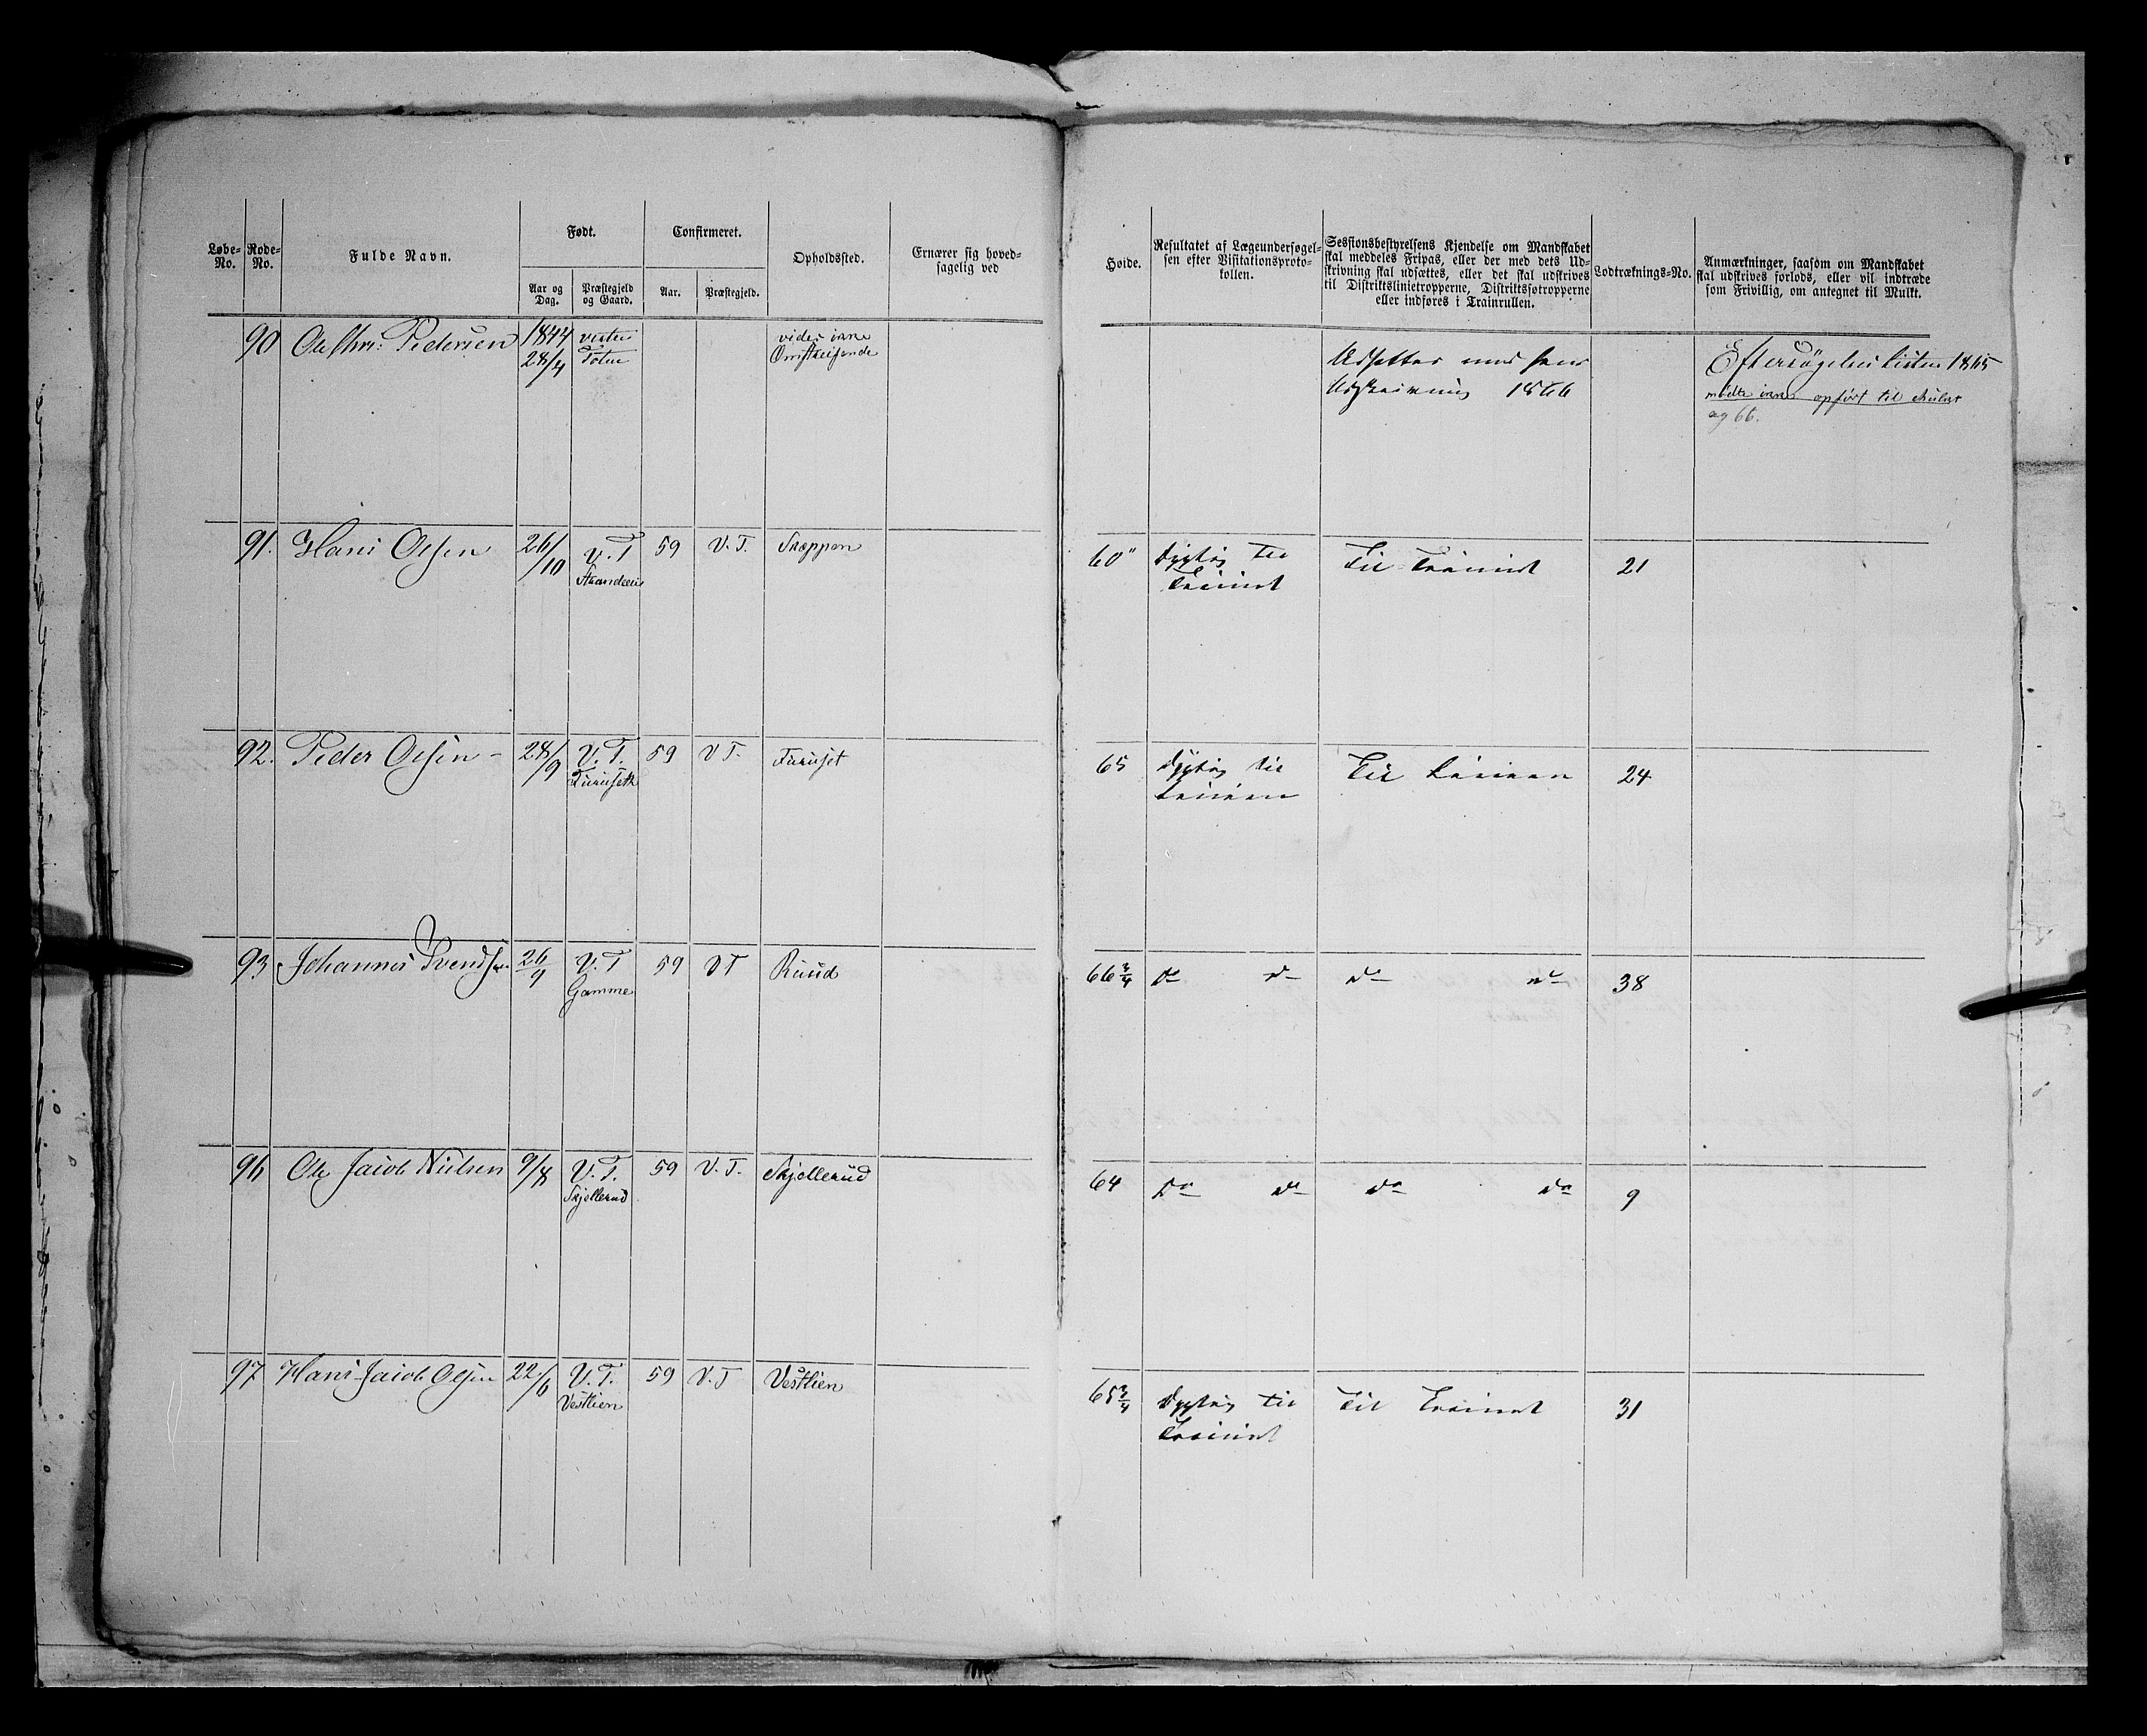 Løbe-No.
Rode-No.
Fulde Navn.
Født.
Aar og Dag.
Præstegjeld og Gaard.
Confirmeret.
Aar.
Præstegjeld.
Opholdssted.
Ernærer sig hoved-
sagelig ved
Høide.
Resultatet af Lægeundersøgel-
sen efter Visitationsproto-
kollen.
Sessionsbestyrelsens Kjendelse om Mandskabet
skal meddeles Fripas, eller der med dets Ud-
skrivning skal udsættes, eller det skal udskrives
til Distriktslinietropperne, Distriktsfotropperne
eller indføres i Trainrullen.
Lodtræknings-No.
Anmærkninger, saasom om Mandskabet
skal udskrives forlods, eller vil indtræde
som Frivillig, om antegnet til Mulkt.
90 Ole Chrs: Pedersen 1844 vestre
28/4 Toten
vides ikke
Omstreifende
Udsættes med hans
Udskrivning 1866
Eftersøgelses Listen 1865
møder ikke opført til Mulct
og 66.
91. Hans Olsen 26/10 V. T 59 V. T. Skreppen 60" Dygtig til Til Trainet 21
Trainet
92. Peder Olsen - 28/9 V. T. 59 V T. Furuset 65 Dygtig til Til Linien 24
Furuseth Linien
93 Johannes Svendsen 26/9 V. T 59 V T Ruud 66 3/4 Do do do do 38
Gamme
96 Ole Jacob Nielsen 9/8 V. T. 59 V. T. Skjellerud 64 Do do do do 9
Skjellerud
97 Hans Jacob Olsen 22/6 V. T. 59 V. T Vestlien 65 3/4 Dygtig til Til Trainet 31
Vestlien Trainet